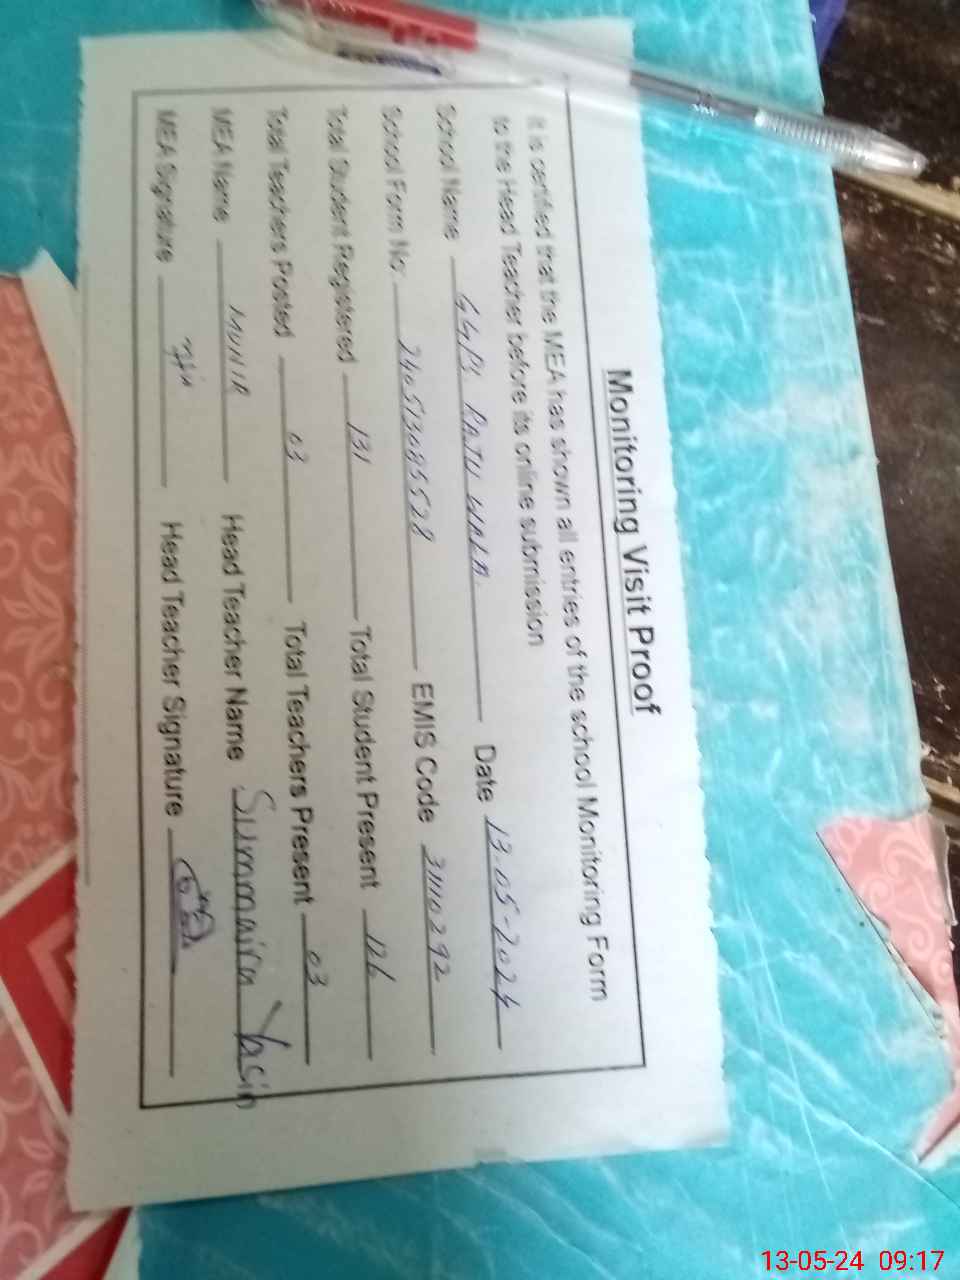 Monitoring Visit Proof
It is certified that the MEA has shown all entries of the school Monitoring Form
to the Head Teacher before its online submission
School Name GGPS RATU WALA Date 13-05-2024
School Form No. EMIS Code 31110292
Total Student Registered 131 Total Student Present 126
Total Teachers Posted 03 Total Teachers Present 03
MEA Name MUNIR Head Teacher Name Summaira Yasin
MEA Signature Head Teacher Signature
13-05-24 09:17